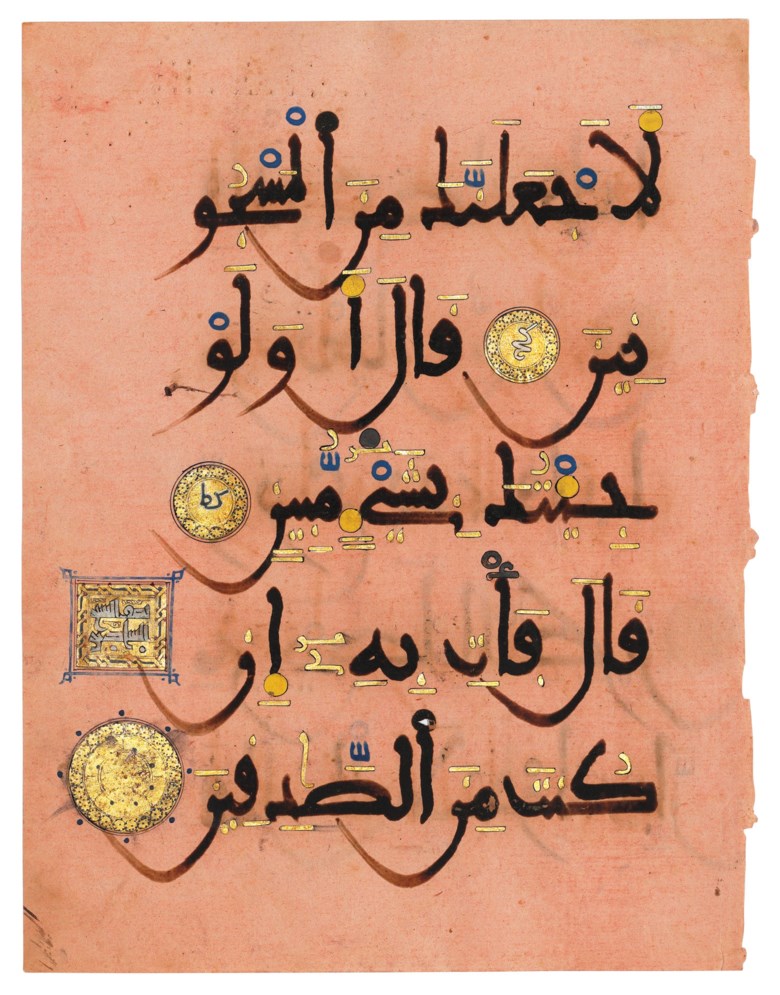 لَأَجْعَلَنَّكَ مِنَ ٱلْمَسْجُو
نِينَ كح قَالَ أَوَلَوْ
جِئْتُكَ بِشَيْءٍ مُّبِينٍ كط
قَالَ فَأْتِ بِهِ إِن
كُنتَ مِنَ ٱلصَّٰدِقِينَ